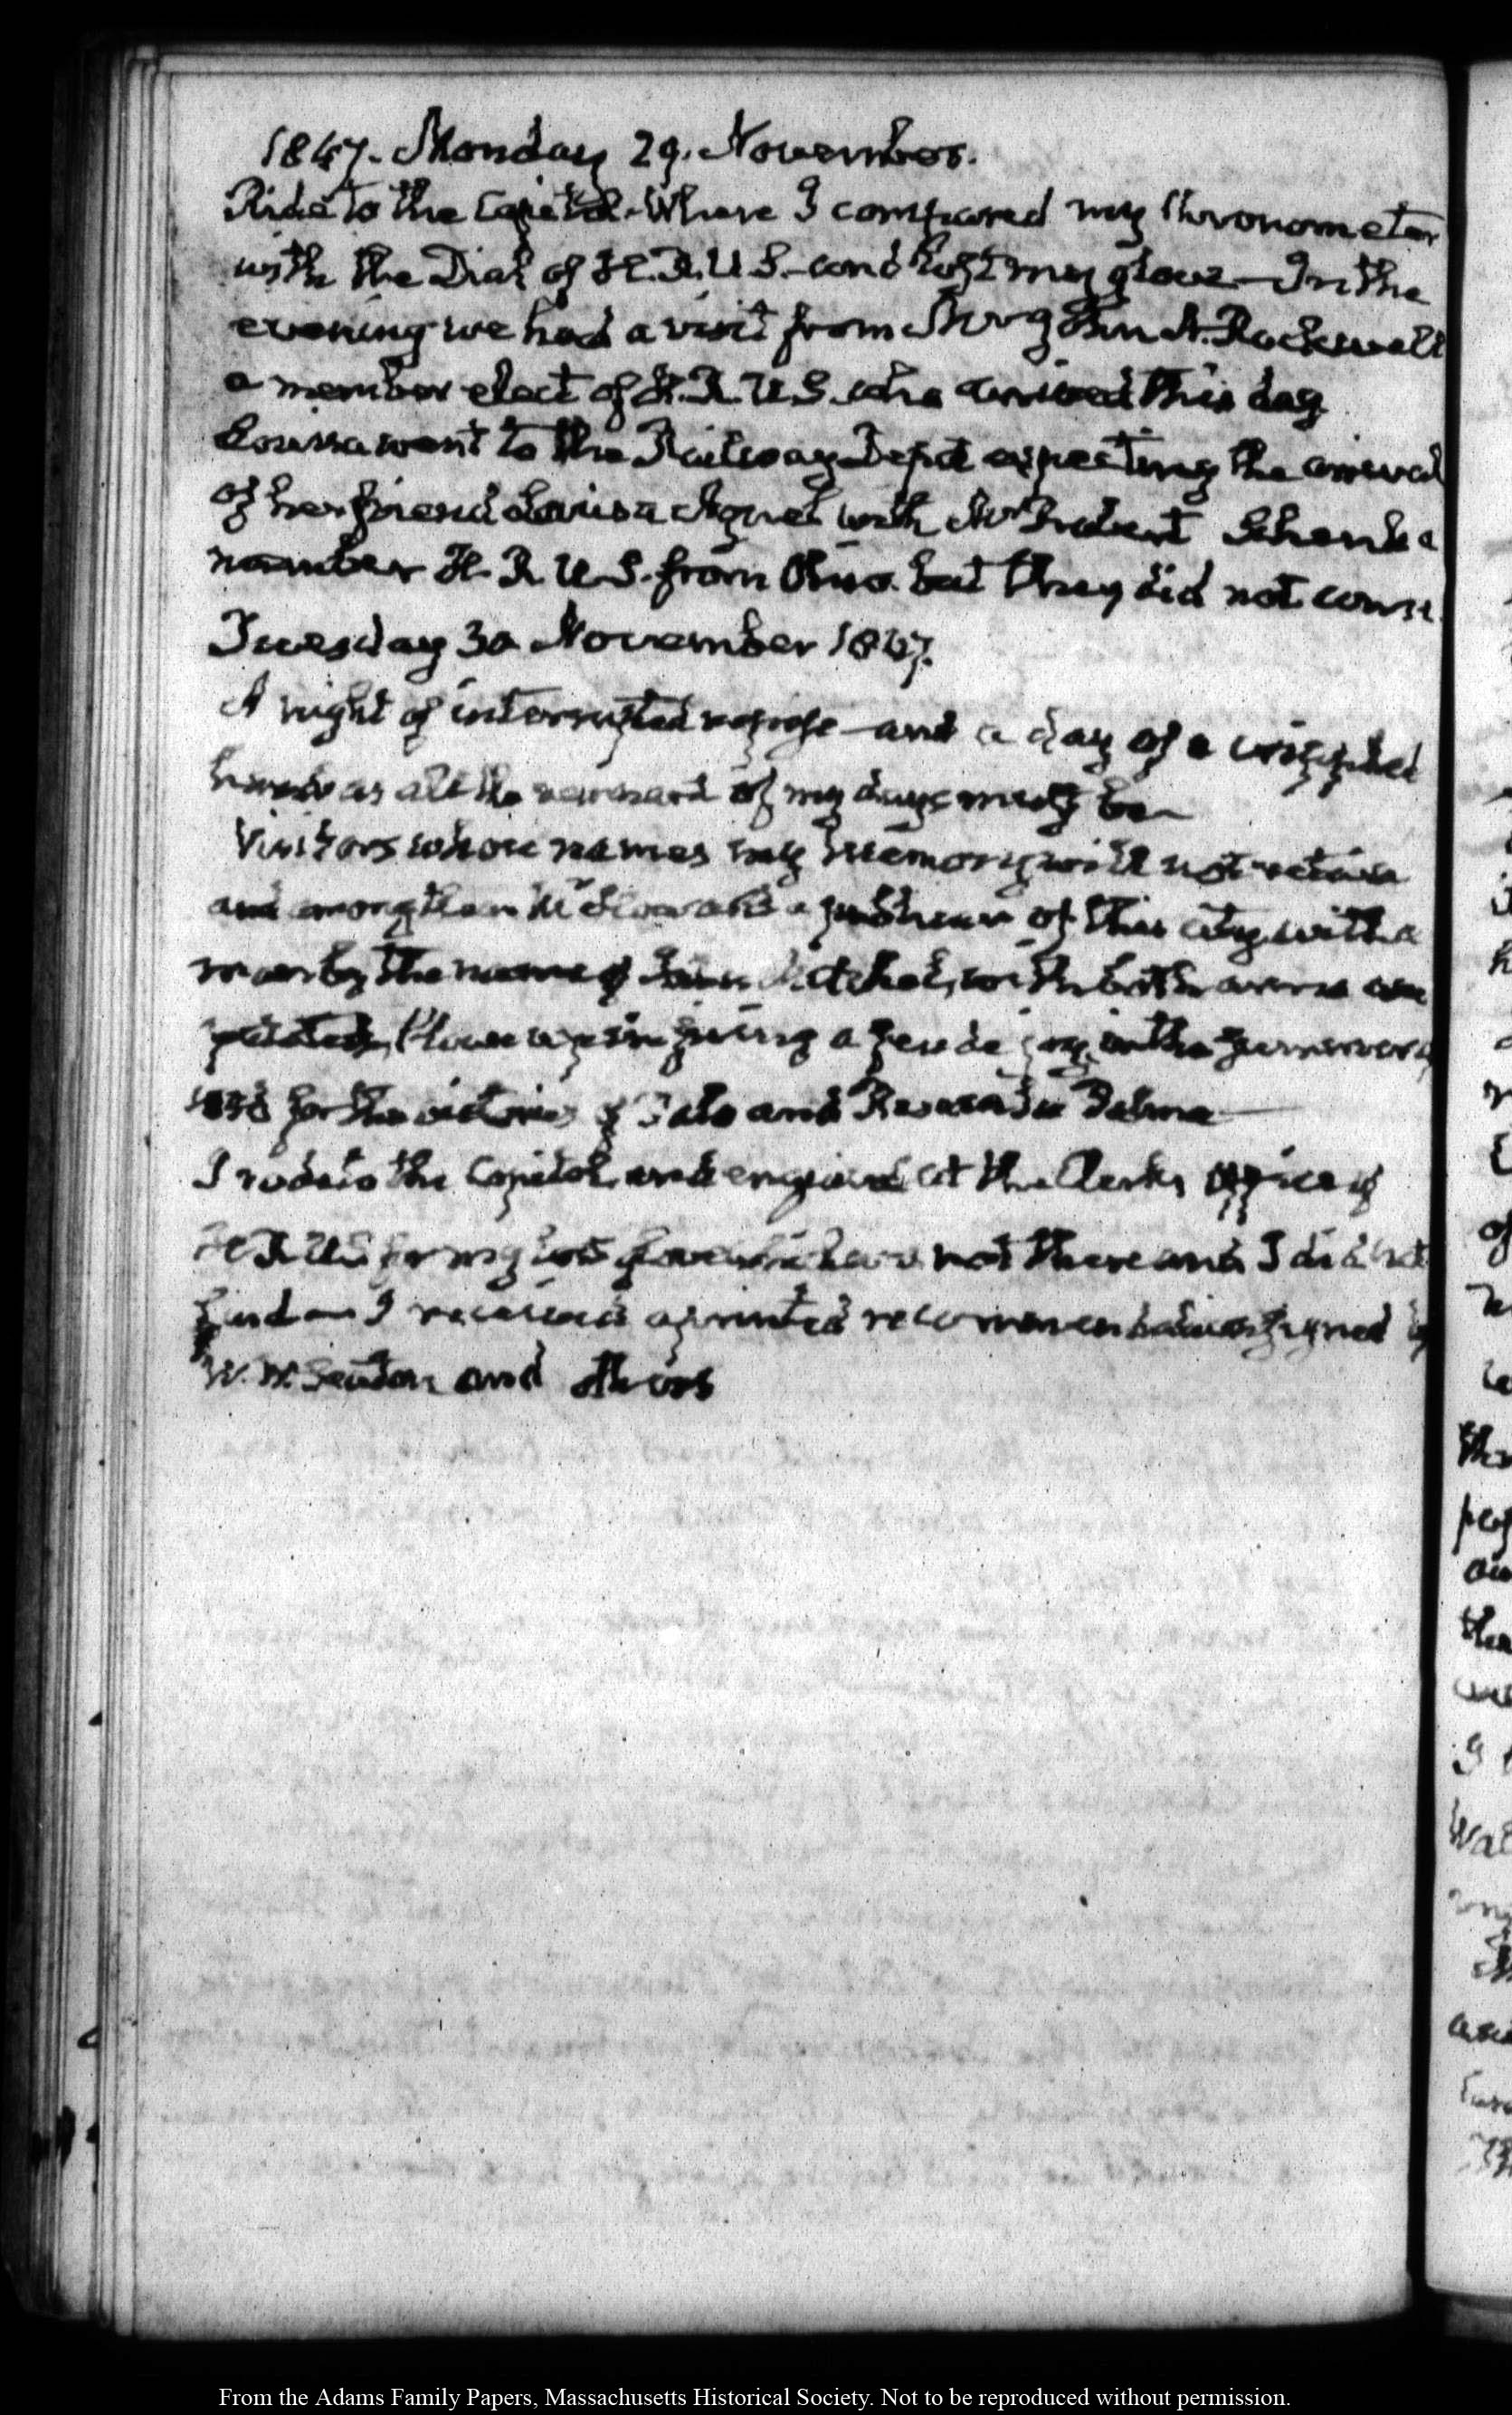 1847. Monday 29. November.
Ride to the Capitol. Where I compared my Chronometer
with the Dial of H.R.U.S. and lost my glove — In the
evening we had a visit from Mr John A. Rockwell
a member elect of H.R.U.S. who arrived this day
Louisa went to the Railway Depot expecting the arrival
of her friend Louisa with Mr Robert Schenk a
member H.R.U.S. from Ohio. but they did not come
Tuesday 30 November 1847.
A night of interrupted repose — and a day of a crippled
as all the of my days must be
Visitors whose names my memory will not retain
and among them Mr a of this city with a
man by the name of with both arms am
a in the
for the victories of Palo and Resaca de Palma —
I rode to the Capitol and enquired at the Clerks office of
H.R.U.S. for my lost glove not there and I did not
find — I received a printed recommendation signed by
W. W. Seaton and others
From the Adams Family Papers, Massachusetts Historical Society. Not to be reproduced without permission.